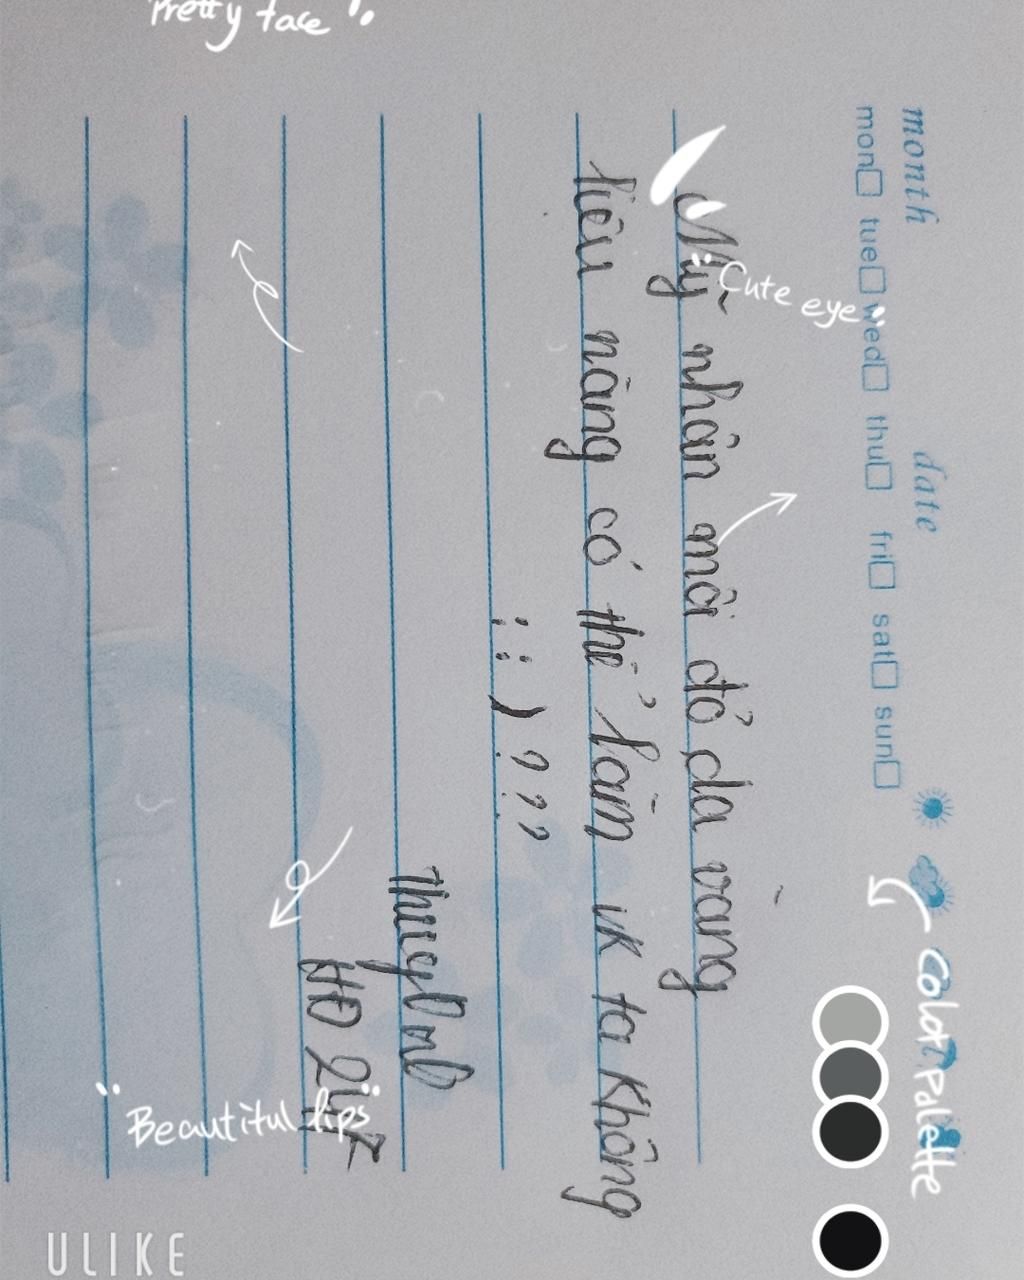 Pretty face
month date
mon tue wed thu fri sat sun
Cute eye
Mỹ nhân môi đỏ da vàng
liệu nàng có thể làm vk ta không
: : ) ? ? ?
HĐ
"Beautiful lips"
Color Palette
ULIKE